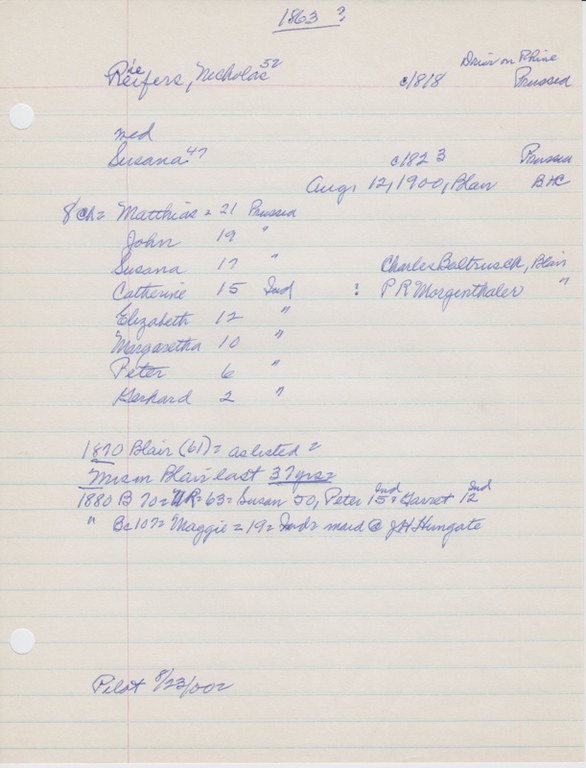 1863 ?
Reifers, Nicholas 52 c1818 Prussia
ie Drier on Rhine
med
Susana 47 c1823 Prussia
Aug. 12, 1900, Blair B HC
8 ch = Matthias = 21 Prussia
John 19 "
Susana 17 " Charles Baltrusch, Blair
Catherine 15 Ind : P R Morgenthaler "
Elizabeth 12 "
Margaretha 10 "
Peter 6 "
Gerhard 2 "
1870 Blair (61) = as listed =
Mrs in Blair last 37 yrs =
1880 B 70 = NR = 63 = Susan 50, Peter 15 Ind = Garret 12 Ind
" Bc 107 = Maggie = 19 = Ind = maid @ J H Hungate
Pilot 8/23/00